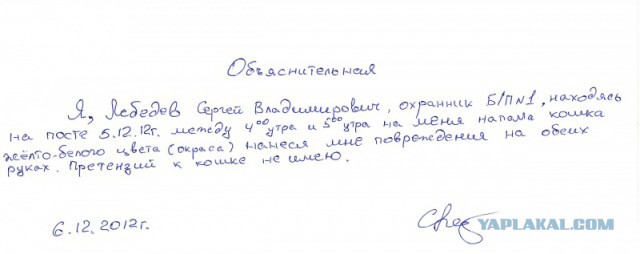 Объяснительная
Я, Лебедев Сергей Владимирович, охранник Б/П №1, находясь
на посте 5.12.12г. между 4⁰⁰ утра и 5⁰⁰ утра на меня напала кошка
жёлто-белого цвета (окраса) нанеся мне повреждения на обеих
руках. Претензий к кошке не имею.
6.12.2012г.
YAPLAKAL.COM